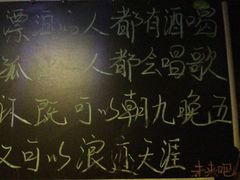 漂泊的人都有酒喝
孤独的人都会唱歌
你既可以朝九晚五
又可以浪迹天涯
未来吧